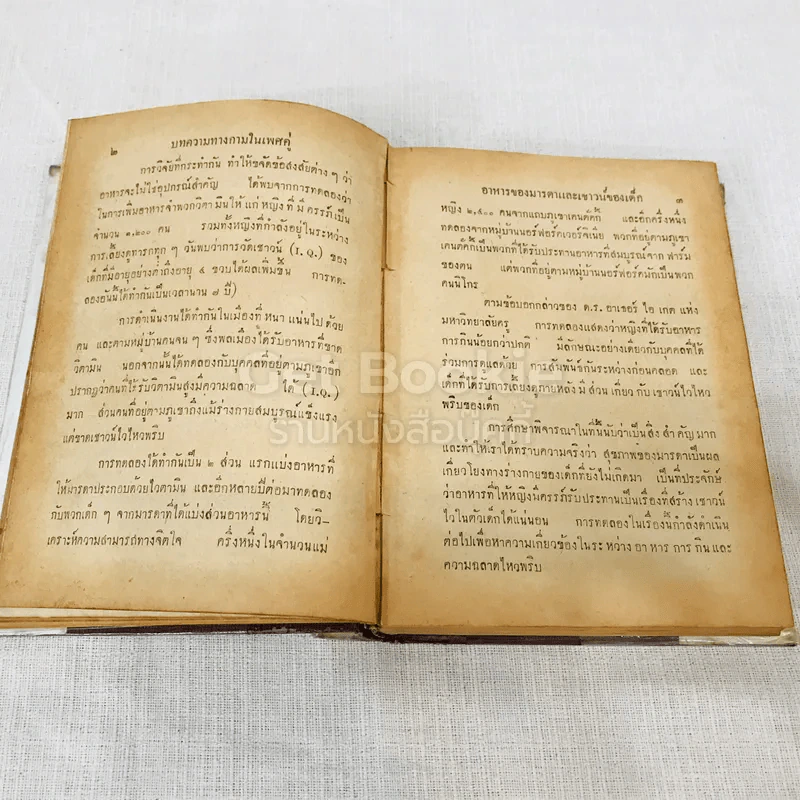 ๒ บทความทางกามในเพศคู่
การวิจัยที่กระทำกัน ทำให้ขจัดข้อสงสัยต่าง ๆ ว่า
อาหารจะไม่ไร่อุปกรณ์สำคัญ ได้พบจากการทดลองว่า
ในการเพิ่มอาหารจำพวกวิตามินให้แก่หญิงที่มีครรภ์เป็น
จำนวน ๑,๒๐๐ คน รวมทั้งหญิงที่กำลังอยู่ในระหว่าง
การเลี้ยงดูทารกทุก ๆ วันพบว่าการวัดเชาวน์ (I.Q.) ของ
เด็กที่มีอายุอย่างต่ำถึงอายุ ๔ ขวบได้ผลเพิ่มขึ้น การทด-
ลองอันนี้ได้ทำกันเป็นเวลานาน ๘ ปี)
การดำเนินงานได้ทำกันในเมืองที่หนาแน่นไปด้วย
คน และตามหมู่บ้านคนจน ๆ ซึ่งพลเมืองได้รับอาหารที่ขาด
วิตามิน นอกจากนั้นได้ทดลองกับบุคคลที่อยู่ตามภูเขาอีก
ปรากฏว่าคนที่ได้รับวิตามินสูงมความฉลาด ได้ (I.Q.)
มาก ส่วนคนที่อยู่ตามภูเขาถึงแม้ร่างกายสมบูรณ์แข็งแรง
แต่ขาดเชาวน์ไวไหวพริบ
การทดลองได้ทำกันเป็น ๒ ส่วน แรกแบ่งอาหารที่
ให้มารดาประกอบด้วยไวตามิน และอีกหลายปีต่อมาทดลอง
กับพวกเด็ก ๆ จากมารดาที่ได้แบ่งส่วนอาหารนี้ โดยวิ-
เคราะห์ความสามารถทางจิตใจ ครึ่งหนึ่งในจำนวนแม่
อาหารของมารดาและเชาวน์ของเด็ก ๓
หญิง ๒,๔๐๐ คนจากแถบภูเขาเคนตัคกี้ และอีกครึ่งหนึ่ง
ทดลองจากหมู่บ้านนอร์ฟอร์คเวอร์จิเนีย พวกที่อยู่ตามภูเขา
เคนตัคกี้เป็นพวกที่ได้รับประทานอาหารที่สมบูรณ์จากฟาร์ม
ของตน แต่พวกที่อยู่ตามหมู่บ้านนอร์ฟอร์คมักเป็นพวก
คนนิโกร
ตามข้อบอกกล่าวของ ด.ร. อาเธอร์ ไอ เกต แห่ง
มหาวิทยาลัยครู การทดลองแสดงว่าหญิงที่ได้รับอาหาร
การกินน้อยกว่าปกติ มีลักษณะอย่างเดียวกับบุคคลที่ได้
ร่วมการดูแลด้วย การสัมพันธ์กันระหว่างก่อนคลอด และ
เด็กที่ได้รับการเลี้ยงดูภายหลัง มีส่วนเกี่ยวกับเชาวน์ไวไหว
พริบของเด็ก
การศึกษาพิจารณาในที่นี้นับว่าเป็นสิ่งสำคัญมาก
และทำให้เราได้ทราบความจริงว่า สุขภาพของมารดาเป็นผล
เกี่ยวโยงทางร่างกายของเด็กที่ยังไม่เกิดมา เป็นที่ประจักษ์
ว่าอาหารที่ให้หญิงมีครรภ์รับประทานเป็นเรื่องที่สร้างเชาวน์
ไวในตัวเด็กได้แน่นอน การทดลองในเรื่องนี้กำลังดำเนิน
ต่อไปเพื่อหาความเกี่ยวข้องในระหว่างอาหารการกินและ
ความฉลาดไหวพริบ
ร้านหนังสือ